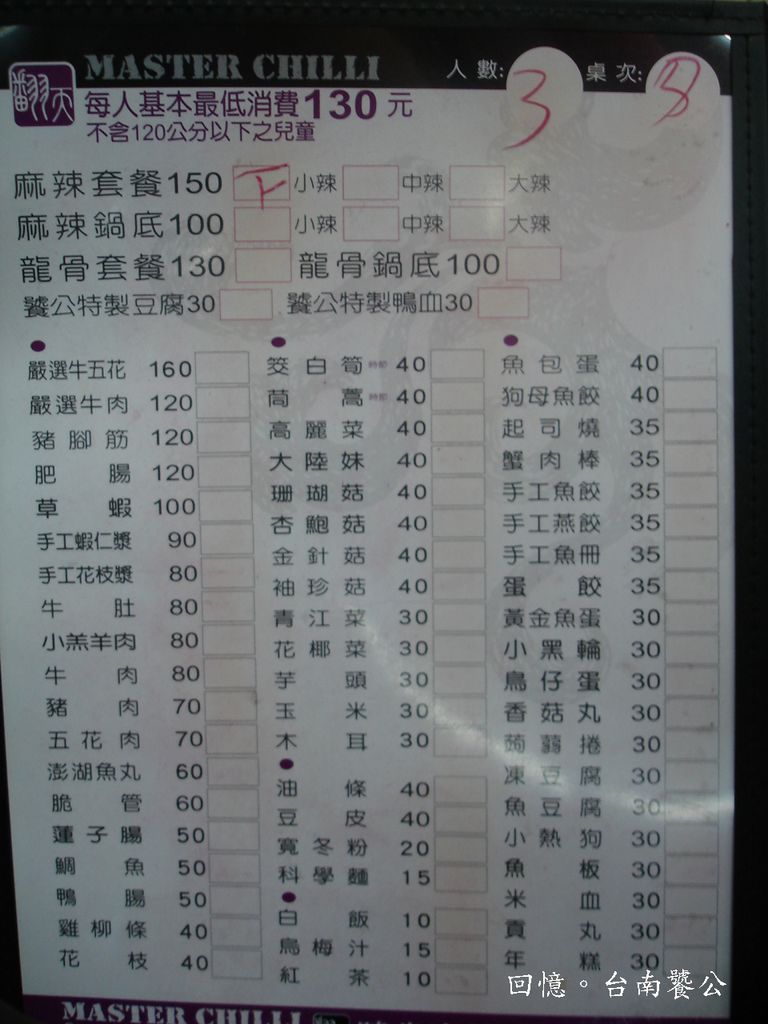 MASTER CHILLI
人數: 3 桌次: 8
翻天
每人基本最低消費130元
不含120公分以下之兒童
麻辣套餐150 下 小辣 中辣 大辣
麻辣鍋底100 小辣 中辣 大辣
龍骨套餐130 龍骨鍋底100
饕公特製豆腐30 饕公特製鴨血30
嚴選牛五花 160
嚴選牛肉 120
豬腳筋 120
肥腸 120
草蝦 100
手工蝦仁漿 90
手工花枝漿 80
牛肚 80
小羔羊肉 80
牛肉 80
豬肉 70
五花肉 70
澎湖魚丸 60
脆管 60
蓮子腸 50
鯛魚 50
鴨腸 50
雞柳條 40
花枝 40
筊白筍 時節 40
茼蒿 時節 40
高麗菜 40
大陸妹 40
珊瑚菇 40
杏鮑菇 40
金針菇 40
袖珍菇 40
青江菜 30
花椰菜 30
芋頭 30
玉米 30
木耳 30
油條 40
豆皮 40
寬冬粉 20
科學麵 15
白飯 10
烏梅汁 15
紅茶 10
魚包蛋 40
狗母魚餃 40
起司燒 35
蟹肉棒 35
手工魚餃 35
手工燕餃 35
手工魚冊 35
蛋餃 35
黃金魚蛋 30
小黑輪 30
鳥仔蛋 30
香菇丸 30
蒟蒻捲 30
凍豆腐 30
魚豆腐 30
小熱狗 30
魚板 30
米血 30
貢丸 30
年糕 30
回憶。台南饕公
MASTER CHILLI